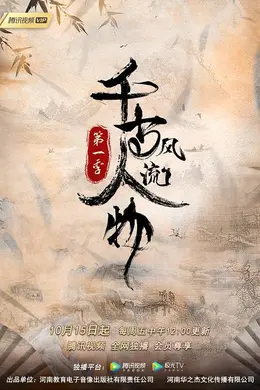 腾讯视频 VIP
千古风流人物
第一季
10月15日起 每周五中午12:00更新
腾讯视频 全网独播 会员尊享
独播平台： 腾讯视频 极光TV
出品单位： 河南教育电子音像出版社有限责任公司 河南华之杰文化传播有限公司